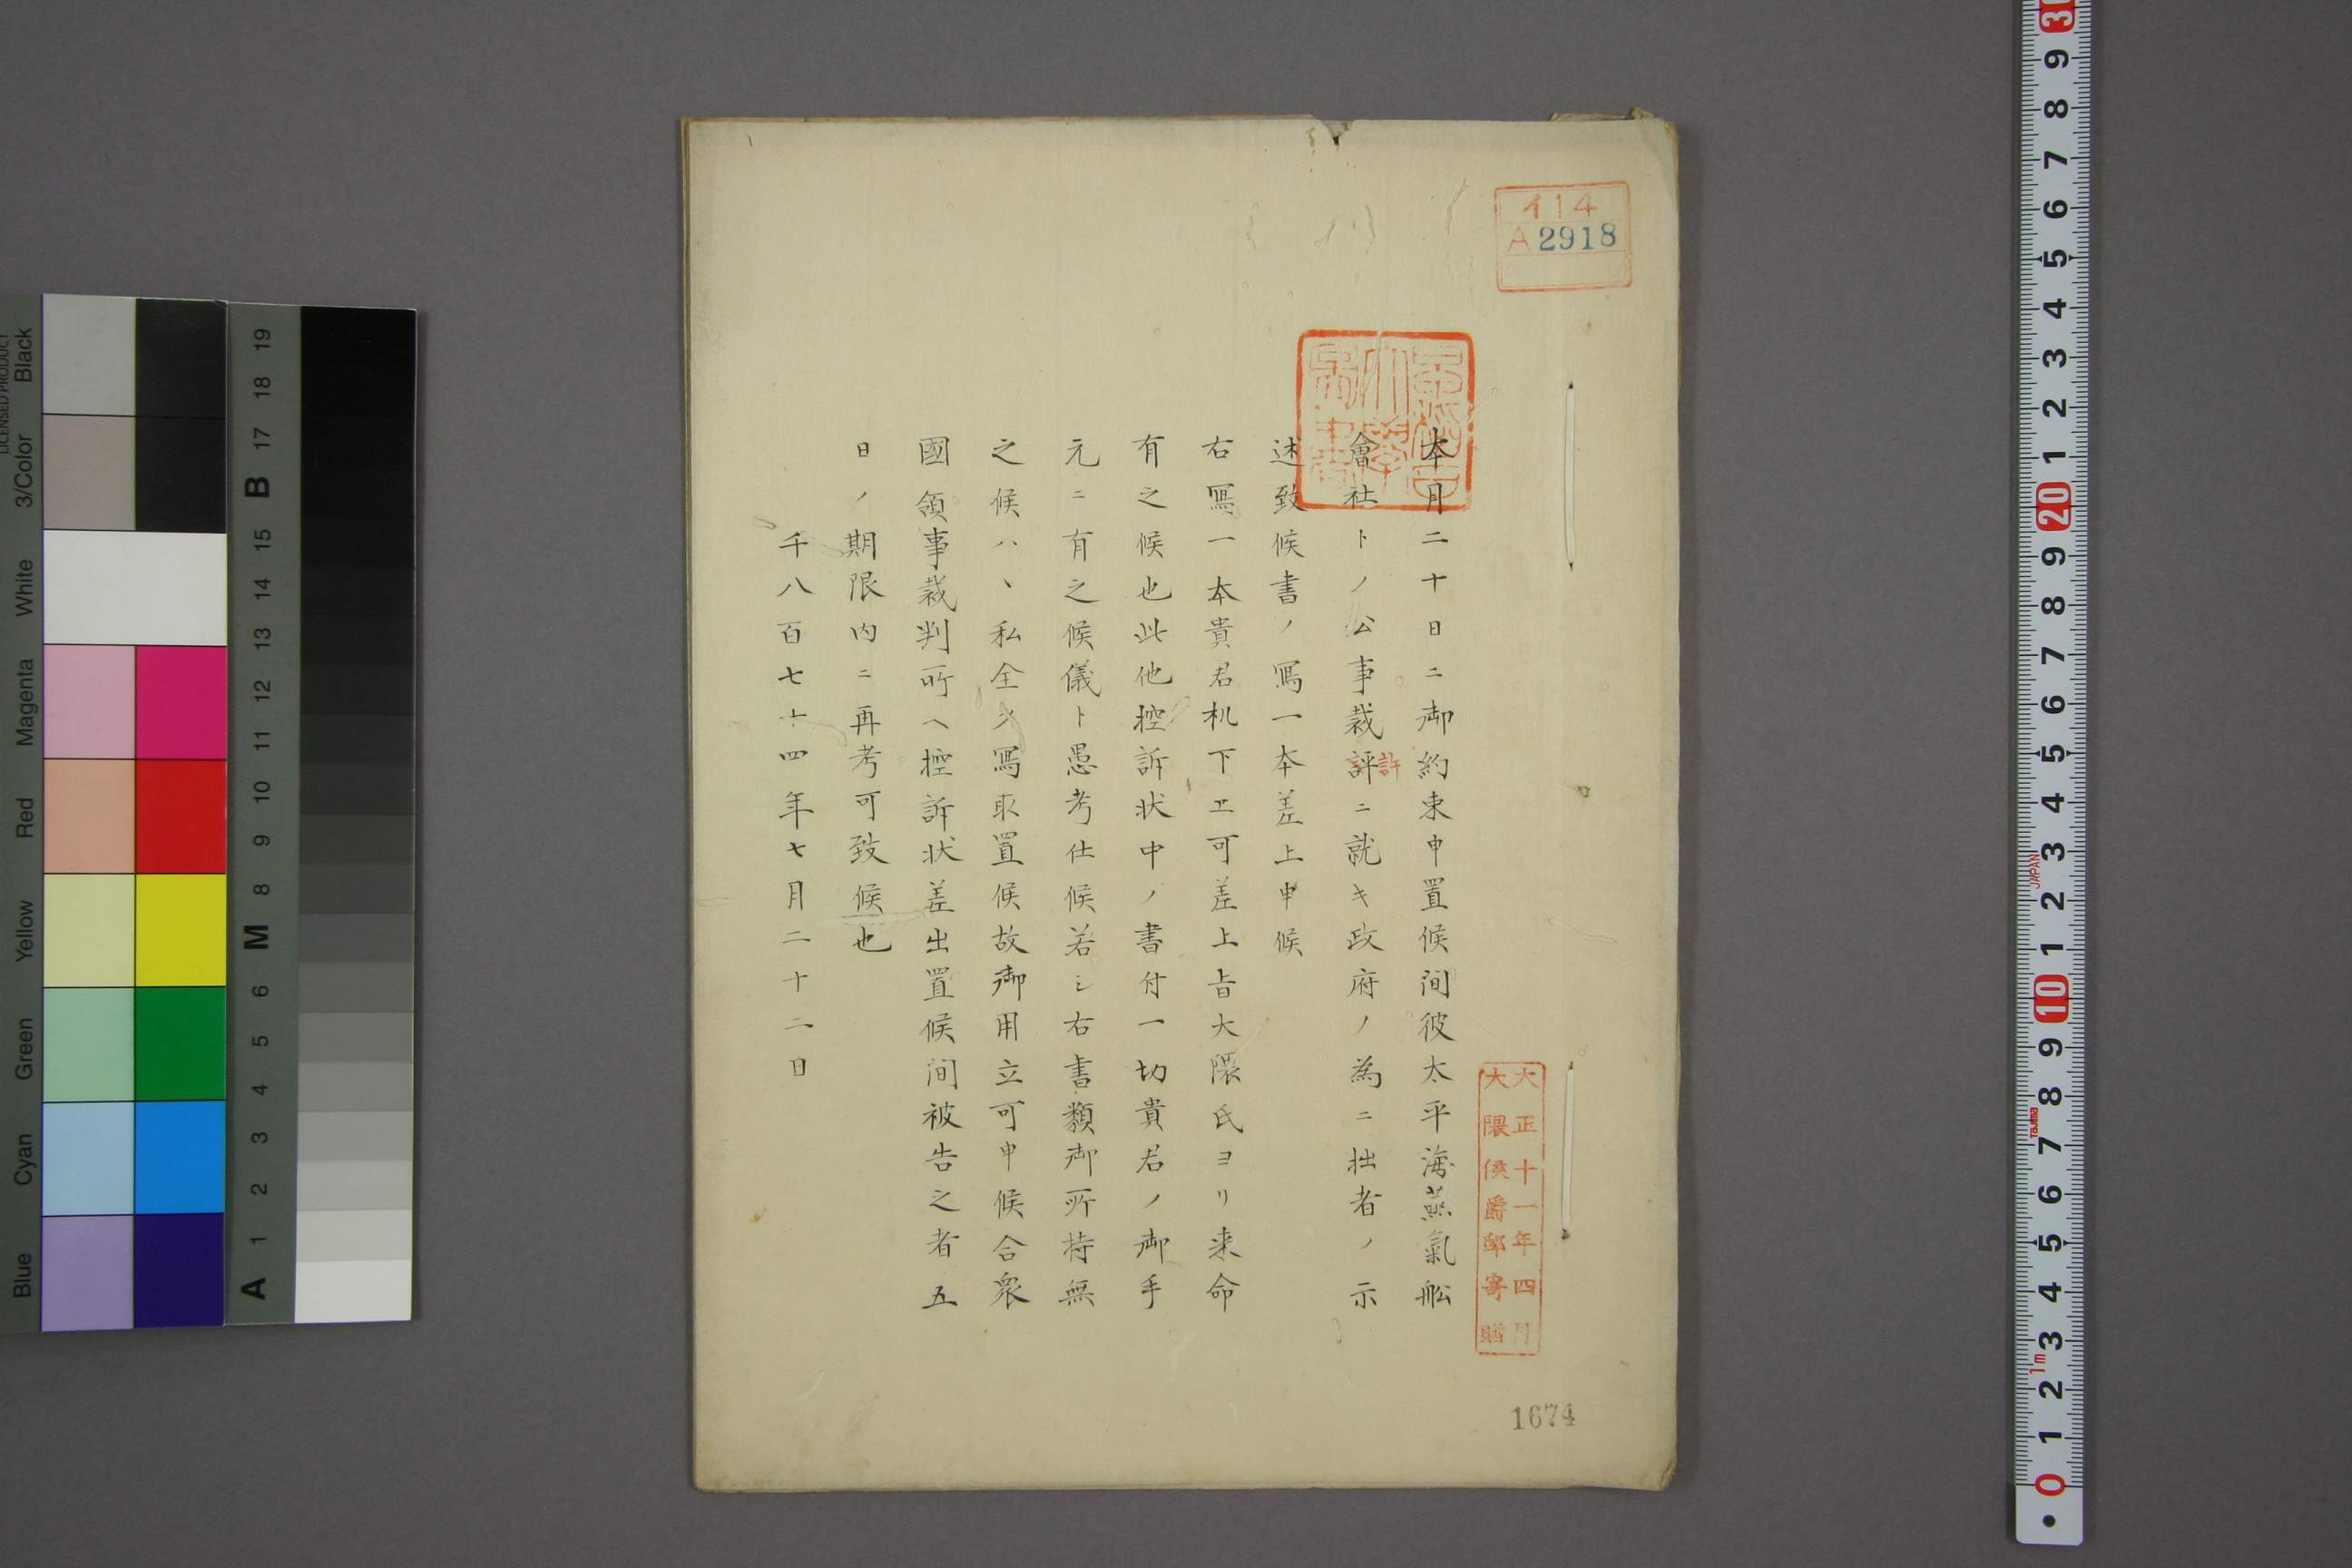 イ14
A2918
本月二十日ニ御約束申置候间彼太平海蒸氣舩
會社トノ公事裁評ニ就キ政府ノ為ニ拙者ノ示
許
述致候書ノ寫一本差上申候
右寫一本貴君机下エ可差上旨大隈氏ヨリ来命
有之候也此他控訴状中ノ書付一切貴君ノ御手
元ニ有之候儀ト愚考仕候若シ右書類御所持無
之候ハヽ私全ク寫取置候故御用立可申候合衆
國領事裁判所ヘ控訴状差出置候间被告之者五
日ノ期限内ニ再考可致候也
千八百七十四年七月二十二日
大正十一年四月
大隈侯爵邸寄贈
1674
LICENSED PRODUCT
Black
3/Color
White
Magenta
Red
Yellow
Green
Cyan
Blue
A 1 2 3 4 5 6 M 8 9 10 11 12 13 14 15 B 17 18 19
JAPAN
Tajima
1m
0 1 2 3 4 5 6 7 8 9 10 1 2 3 4 5 6 7 8 9 20 1 2 3 4 5 6 7 8 9 30